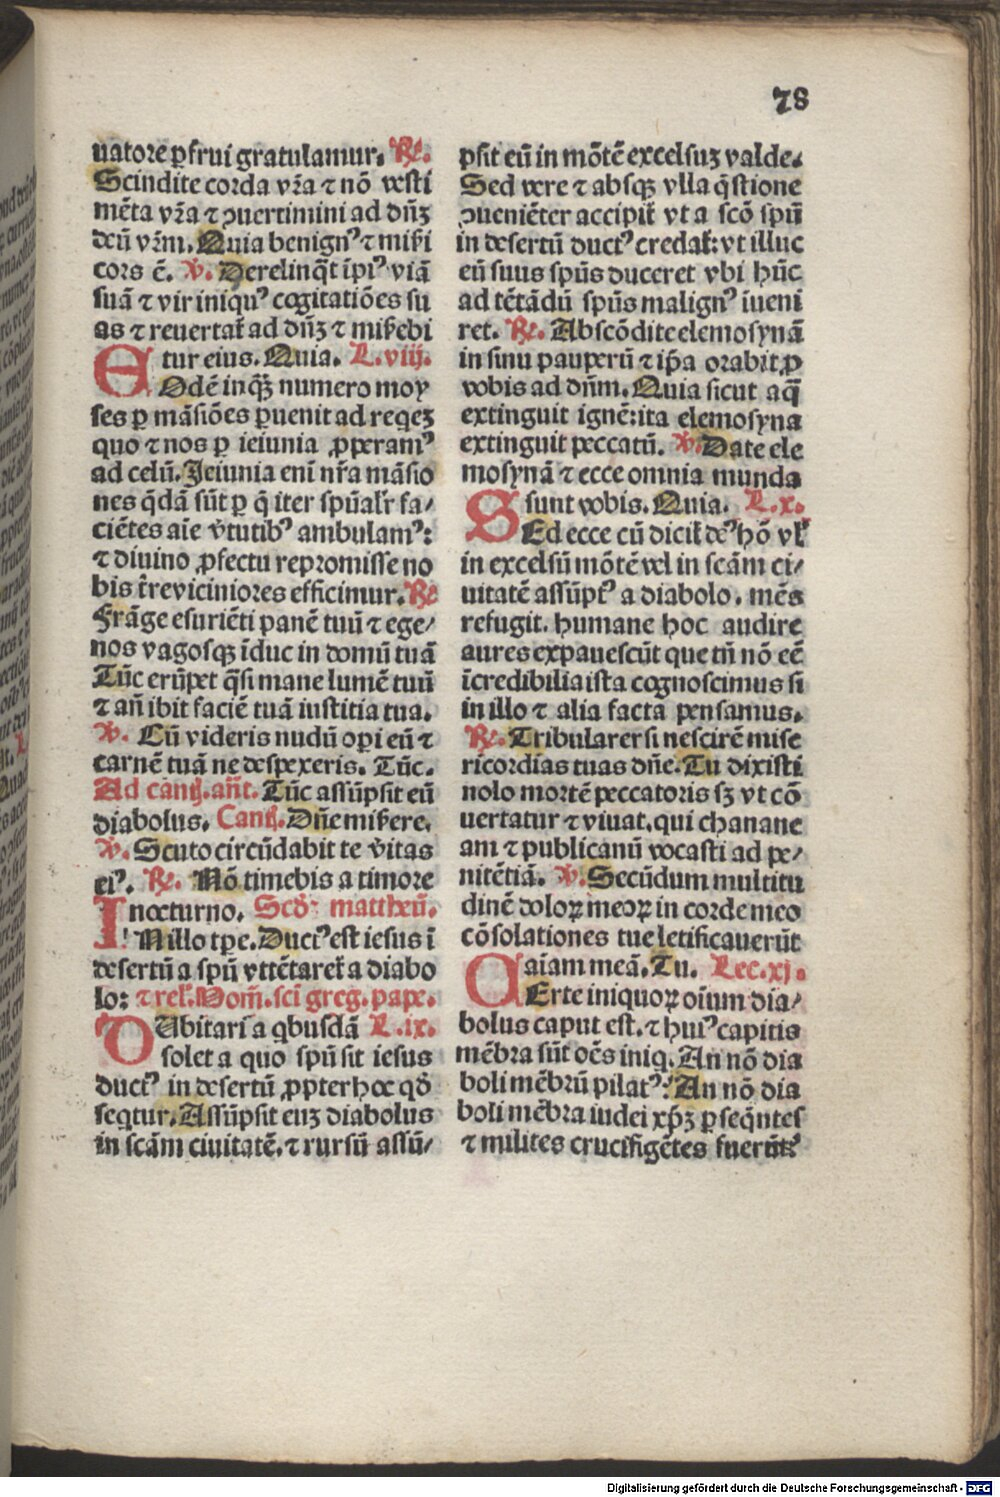 78
uatore ꝑfrui gratulamur. ℟.
Scindite corda vr̄a ⁊ nō vesti
mēta vr̄a ⁊ ꝯuertimini ad dn̄ꝫ
deū vr̄m. Quia benignꝰ ⁊ mis̄i
cors ē. ℣. Derelinq̄t īpiꝰ viā
suā ⁊ vir iniquꝰ cogitatiōes su
as ⁊ reuertat̄ ad dn̄ꝫ ⁊ mis̄ebi
tur eius. Quia. L. viij.
EOdē inq̄ꝫ numero moy
ses ꝑ māsiōes ꝑuenit ad reqeꝫ
quo ⁊ nos ꝑ ieiunia ꝓperamꝰ
ad celū. Jeiunia enī nr̄a māsio
nes q̄dā sūt ꝑ q̄ iter spūal'r fa⸗
ciētes aīe v̄tutibꝰ ambulamꝰ:
⁊ diuino ꝓfectu repromisse no
bis t̄re viciniores efficimur. ℟
Frāge esuriēti panē tuū ⁊ ege⸗
nos vagosqꝫ īduc in domū tuā
Tūc erūpet q̄si mane lumē tuū
⁊ an̄ ibit faciē tuā iustitia tua.
℣. Cū videris nudū opi eū ⁊
carnē tuā ne despexeris. Tūc.
Ad cantj. an̄t. Tūc assūpsit eū
diabolus. Cantj. Dn̄e mis̄ere.
℣. Scuto circūdabit te v̄itas
eiꝰ. ℟. Nō timebis a timore
nocturno. Scd̄ꝫ mattheū.
IN illo tꝑe. Ductꝰ est iesus ī
desertū a spū vt tētaret̄ a diabo
lo: ⁊ rel'. Dom̄. sci greg. pape.
DUbitari a qbusdā L. ix.
solet a quo spū sit iesus
ductꝰ in desertū ꝓpter hoc qd̄
seqtur. Assūpsit euꝫ diabolus
in scām ciuitatē. ⁊ rursū assū⸗
psit eū in mōtē excelsuꝫ valde.
Sed vere ⁊ absqꝫ vlla q̄stione
ꝯueniēter accipit̄ vt a scō spū
in desertū ductꝰ credat̄: vt illuc
eū suus spūs duceret vbi hūc
ad tētādū spūs malignꝰ iueni
ret. ℟. Abscōdite elemosynā
in sinu pauperū ⁊ ip̄a orabit ꝓ
vobis ad dn̄m. Quia sicut aq̄
extinguit ignē: ita elemosyna
extinguit peccatū. ℣. Date ele
mosynā ⁊ ecce omnia munda
sunt vobis. Quia. L. x.
SEd ecce cū dicit̄ deꝰ hō vl'
in excelsū mōtē vel in scām ci⸗
uitatē assūptꝰ a diabolo. mēs
refugit. humane hoc audire
aures expauescūt que tn̄ nō eē
īcredibilia ista cognoscimus si
in illo ⁊ alia facta pensamus.
℟. Tribularer si nescirē mise
ricordias tuas dn̄e. Tu dixisti
nolo mortē peccatoris sꝫ vt cō
uertatur ⁊ viuat. qui chanane
am ⁊ publicanū vocasti ad pe⸗
nitētiā. ℣. Secūdum multitu
dinē doloꝝ meoꝝ in corde meo
cōsolationes tue letificauerūt
aīam meā. Tu. Lec. xj.
CErte iniquoꝝ oīum dia⸗
bolus caput est. ⁊ huiꝰ capitis
mēbra sūt oēs iniq. An nō dia
boli mēbrū pilatꝰ? An nō dia
boli mēbra iudei xp̄ꝫ ꝑseq̄ntes
⁊ milites crucifigētes fuerūt?
Digitalisierung gefördert durch die Deutsche Forschungsgemeinschaft - DFG